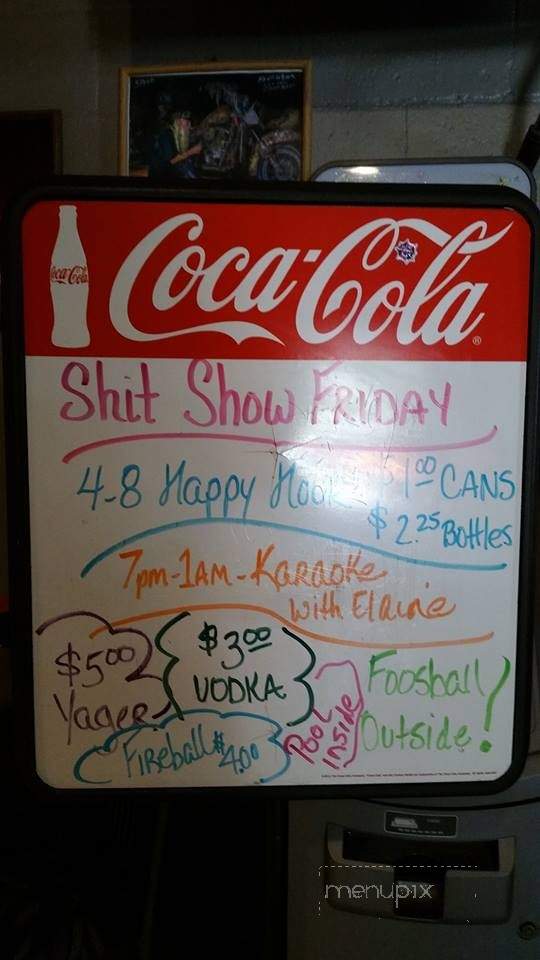 Coca-Cola
Coca-Cola ®
Shit Show FRIDAY
4-8 Happy $1.00 CANS
$2.25 Bottles
7pm-1AM-Karaoke
with Elaine
$5.00
Yager
$3.00
VODKA
Fireball $4.00
Pool
inside
Foosball
Outside!
menupix